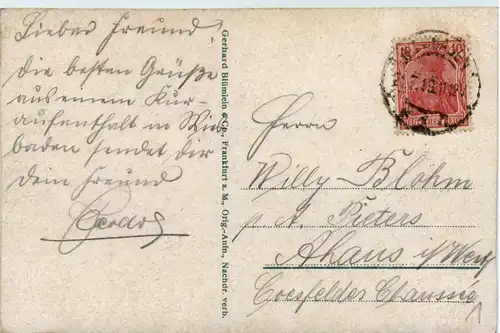 Lieber Freund.
die besten Grüße
aus einem Kur-
aufenthalt in Wies
baden sendet dir
dein Freund
Gerhard Blümlein & Co., Frankfurt a. M., Orig.-Aufn., Nachdr. verb.
10 10
Herrn
Willy Blohm
p/ A. Pieters
Ahaus i/Westf
Coesfelder Chaussee